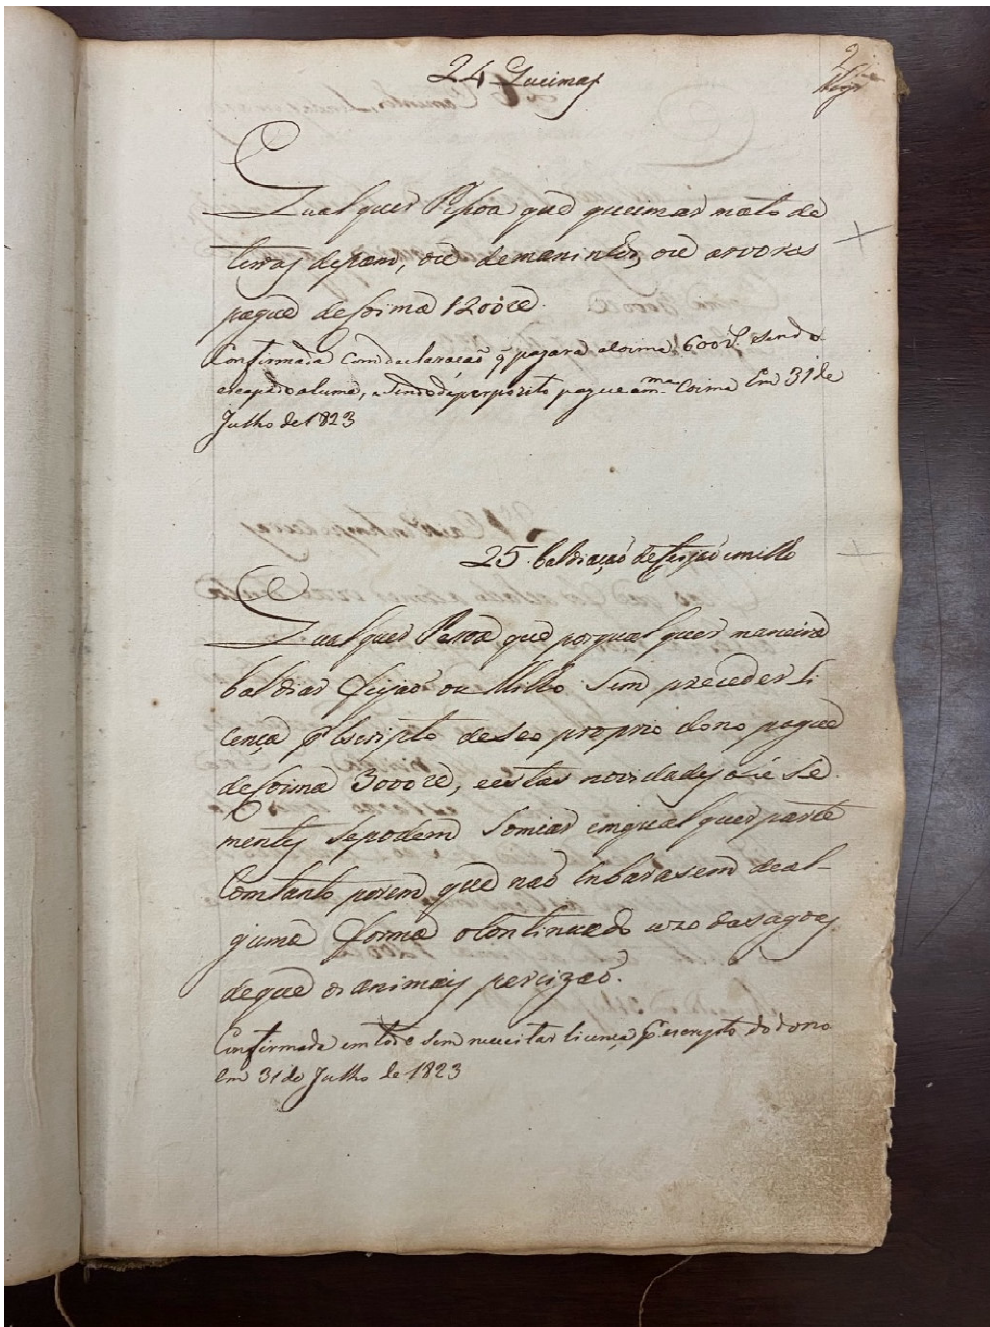 24 Queimas
Qualquer Pessoa que queimar mato de
terras depam, ou demaninho, ou arvores
pague deCoima 1200 re
Confirmada Com declaração q pagará aCoima 600 r. sendo
escapado alume, e Sendo deperpozito pague am.ma Coima Em 31 de
Julho de 1823
25 baldiação defeijão emilho
Qualquer Pessoa que porqual quer maneira
baldiar feijão ou Milho Sem preceder li
cença p.r Escripto deseo proprio dono pague
deCoima 3000 re, eestas novidades
mentes Sepodem Semiar emqual quer parte
Comtanto porem que não Enbarasem deal-
guma forma oContinuado uzo dasagoas
deque os animais percizão.
Confirmada emtudo e Sem necesitar licença p.r escripto do dono
em 31 de Julho de 1823